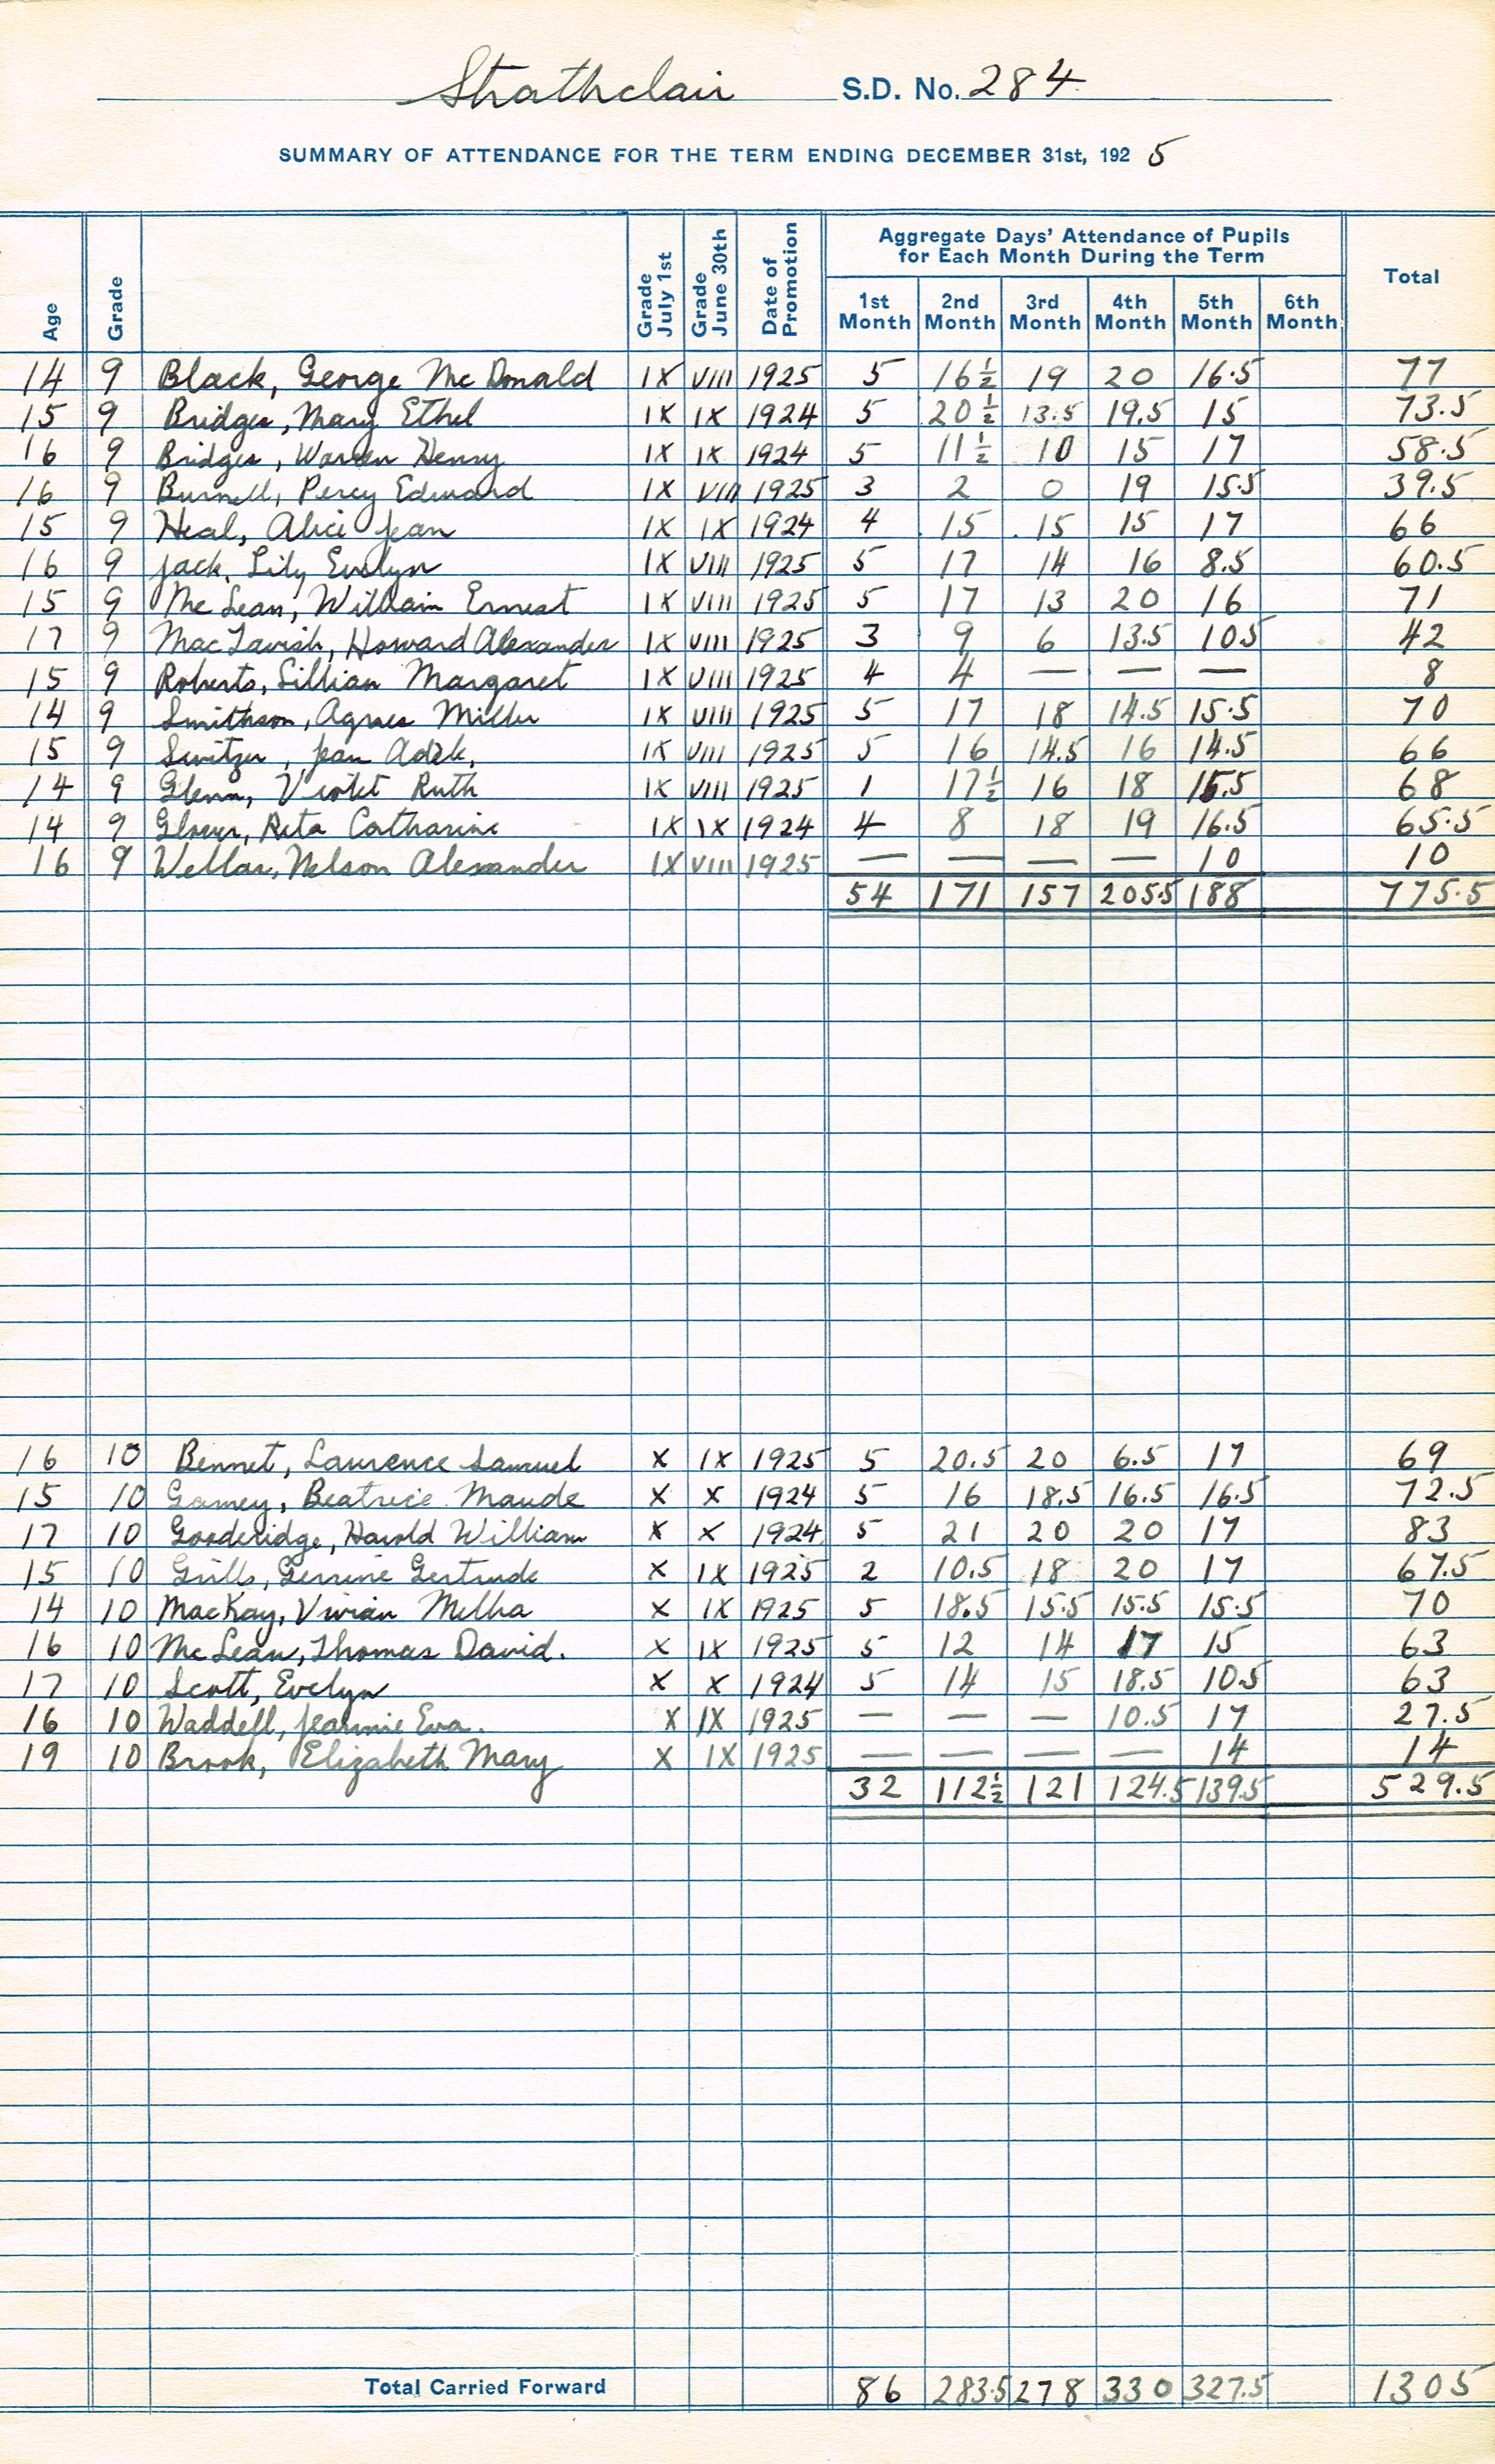 Strathclair S.D. No. 284
SUMMARY OF ATTENDANCE FOR THE TERM ENDING DECEMBER 31st, 192 5
Age Grade Grade July 1st Grade June 30th Date of Promotion Aggregate Days' Attendance of Pupils for Each Month During the Term Total
1st Month 2nd Month 3rd Month 4th Month 5th Month 6th Month
14 9 Black, George McDonald IX VIII 1925 5 16½ 19 20 16.5 77
15 9 Bridges, Mary Ethel IX IX 1924 5 20½ 13.5 19.5 15 73.5
16 9 Bridges, Warren Henry IX IX 1924 5 11½ 10 15 17 58.5
16 9 Burnell, Percy Edward IX VIII 1925 3 2 0 19 15.5 39.5
15 9 Heal, Alice Jean IX IX 1924 4 15 15 15 17 66
16 9 Jack, Lily Evelyn IX VIII 1925 5 17 14 16 8.5 60.5
15 9 McLean, William Ernest IX VIII 1925 5 17 13 20 16 71
17 9 MacTavish, Howard Alexander IX VIII 1925 3 9 6 13.5 10.5 42
15 9 Roberts, Lillian Margaret IX VIII 1925 4 4 — — — 8
14 9 Smithson, Agnes Miller IX VIII 1925 5 17 18 14.5 15.5 70
15 9 Switzer, Jean Adele, IX VIII 1925 5 16 14.5 16 14.5 66
14 9 Glenn, Violet Ruth IX VIII 1925 1 17½ 16 18 15.5 68
14 9 Glover, Reta Catharine IX IX 1924 4 8 18 19 16.5 65.5
16 9 Wellar, Nelson Alexander IX VIII 1925 — — — — 10 10
54 171 157 205.5 188 775.5
16 10 Bennet, Laurence Samuel X IX 1925 5 20.5 20 6.5 17 69
15 10 Gamey, Beatrice Maude X X 1924 5 16 18.5 16.5 16.5 72.5
17 10 Gooderidge, Harold William X X 1924 5 21 20 20 17 83
15 10 Grills, Gertrude X IX 1925 2 10.5 18 20 17 67.5
14 10 MacKay, Vivian Melba X IX 1925 5 18.5 15.5 15.5 15.5 70
16 10 McLean, Thomas David. X IX 1925 5 12 14 17 15 63
17 10 Scott, Evelyn X X 1924 5 14 15 18.5 10.5 63
16 10 Waddell, Jeannie Eva. X IX 1925 — — — 10.5 17 27.5
19 10 Brook, Elizabeth Mary X IX 1925 — — — — 14 14
32 112½ 121 124.5 139.5 529.5
Total Carried Forward 86 283.5 278 330 327.5 1305